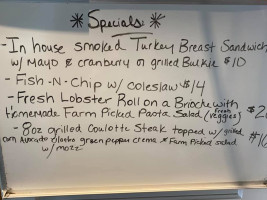 *Specials*
- In house smoked Turkey Breast Sandwich
w/ Mayo & cranberry on grilled Bulkie $10
- Fish-N-Chip w/ coleslaw $14
- Fresh Lobster Roll on a Brioche with
Homemade Farm Picked Pasta Salad (Fresh veggies) $2
- 8oz grilled Coulotte Steak topped w/ grilled
corn Avocado cilantro green pepper crema & Farm Picked salad
w/ mozz $16